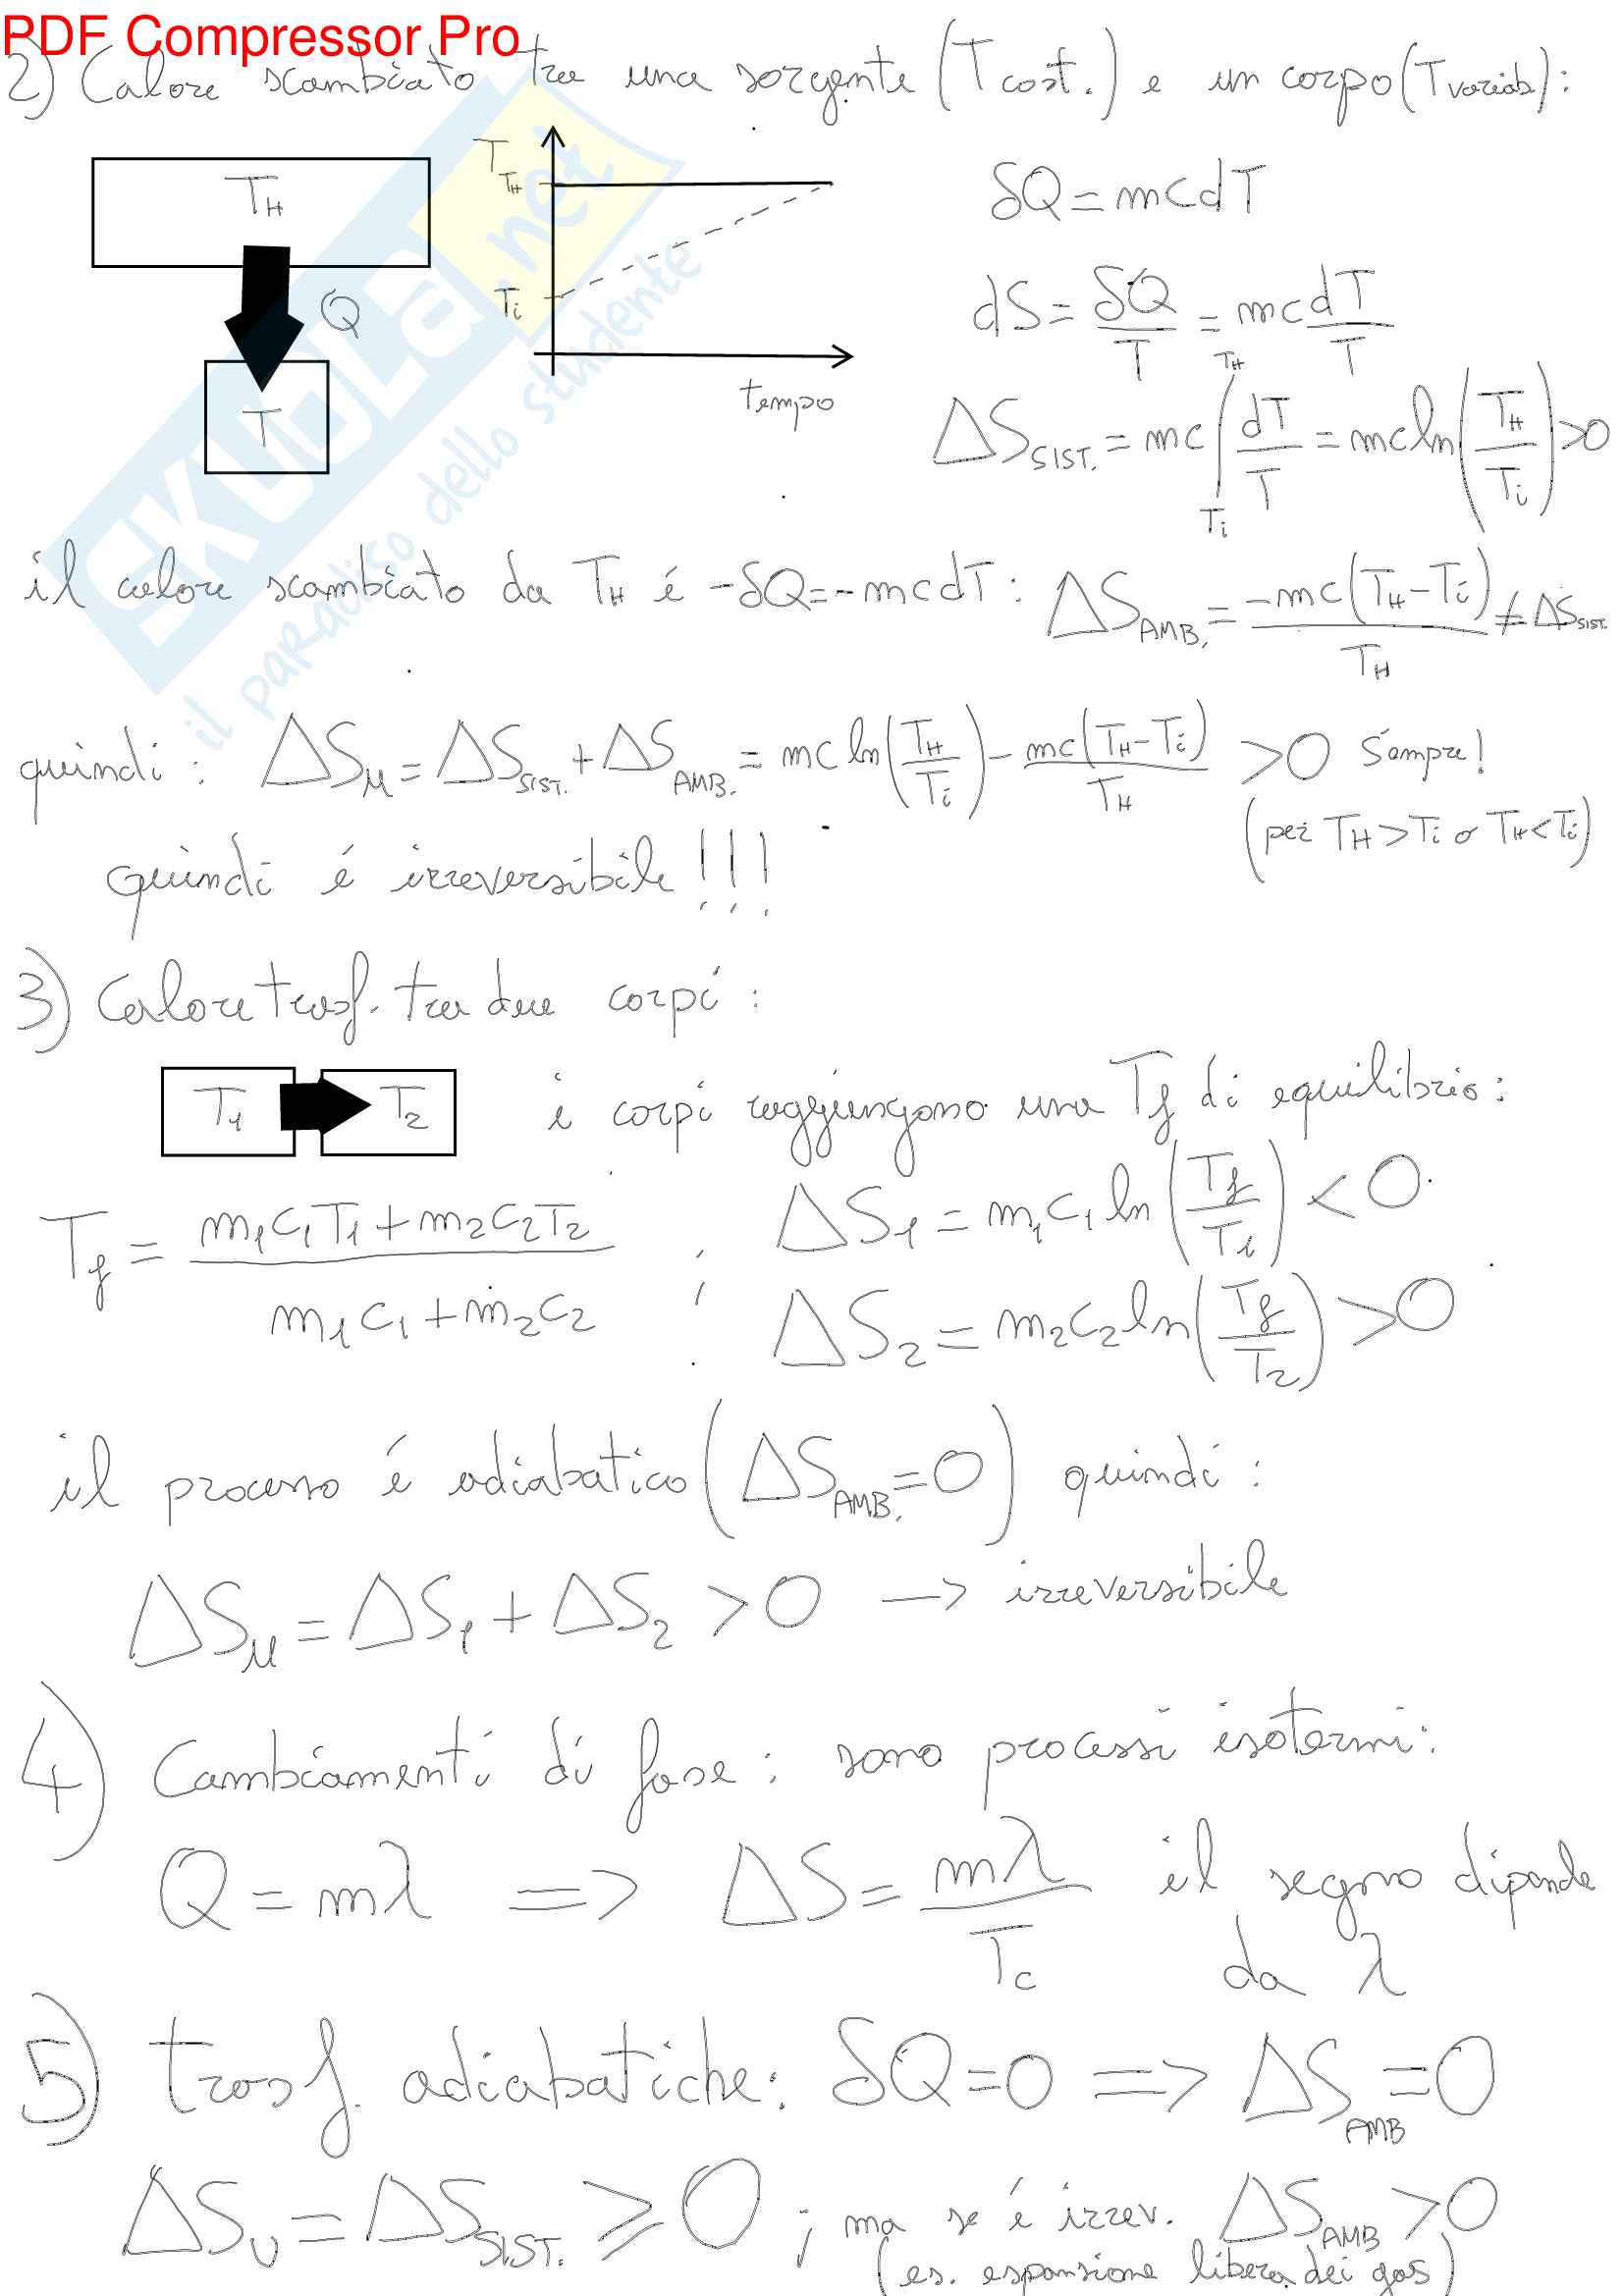 PDF Compressor Pro
2) Calore scambiato tra una sorgente (T cost.) e un corpo (T variab.):
T_H
Q
T
T
T_H
T_i
tempo
δQ = mcdT
dS = δQ/T = mc dT/T
ΔS_SIST. = mc ∫_{T_i}^{T_H} dT/T = mc ln(T_H/T_i) > 0
il calore scambiato da T_H é -δQ = -mcdT : ΔS_AMB. = -mc(T_H - T_i)/T_H ≠ ΔS_SIST.
quindi : ΔS_u = ΔS_SIST. + ΔS_AMB. = mc ln(T_H/T_i) - mc(T_H - T_i)/T_H > 0 sempre!
(per T_H > T_i o T_H < T_i)
quindi é irreversibile!!!
3) Calore trasf. tra due corpi :
T_1 T_2
i corpi raggiungono una T_f di equilibrio:
T_f = (m_1c_1T_1 + m_2c_2T_2)/(m_1c_1 + m_2c_2) ;
ΔS_1 = m_1c_1 ln(T_f/T_1) < 0
ΔS_2 = m_2c_2 ln(T_f/T_2) > 0
il processo é adiabatico (ΔS_AMB. = 0) quindi :
ΔS_u = ΔS_1 + ΔS_2 > 0 → irreversibile
4) Cambiamenti di fase : sono processi isotermi:
Q = mλ => ΔS = mλ/T_c il segno dipende
da λ
5) trasf. adiabatiche: δQ = 0 => ΔS_AMB = 0
ΔS_U = ΔS_SIST. ≥ 0 ; ma se é irrev. ΔS_AMB > 0
(es. espansione libera dei gas)
SKUOLA.net
il paradiso dello studente